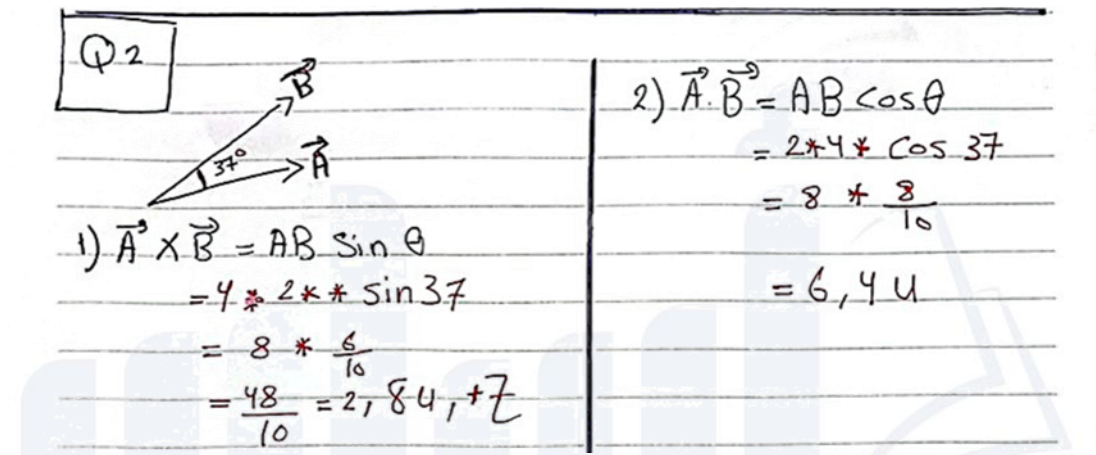 Q2
B
37°
A
1) A × B = AB Sin θ
= 4 * 2 * * Sin 37
= 8 * 6/10
= 48/10 = 2,8 u, +Z
2) A . B = AB cos θ
= 2 * 4 * Cos 37
= 8 * 8/10
= 6,4 u